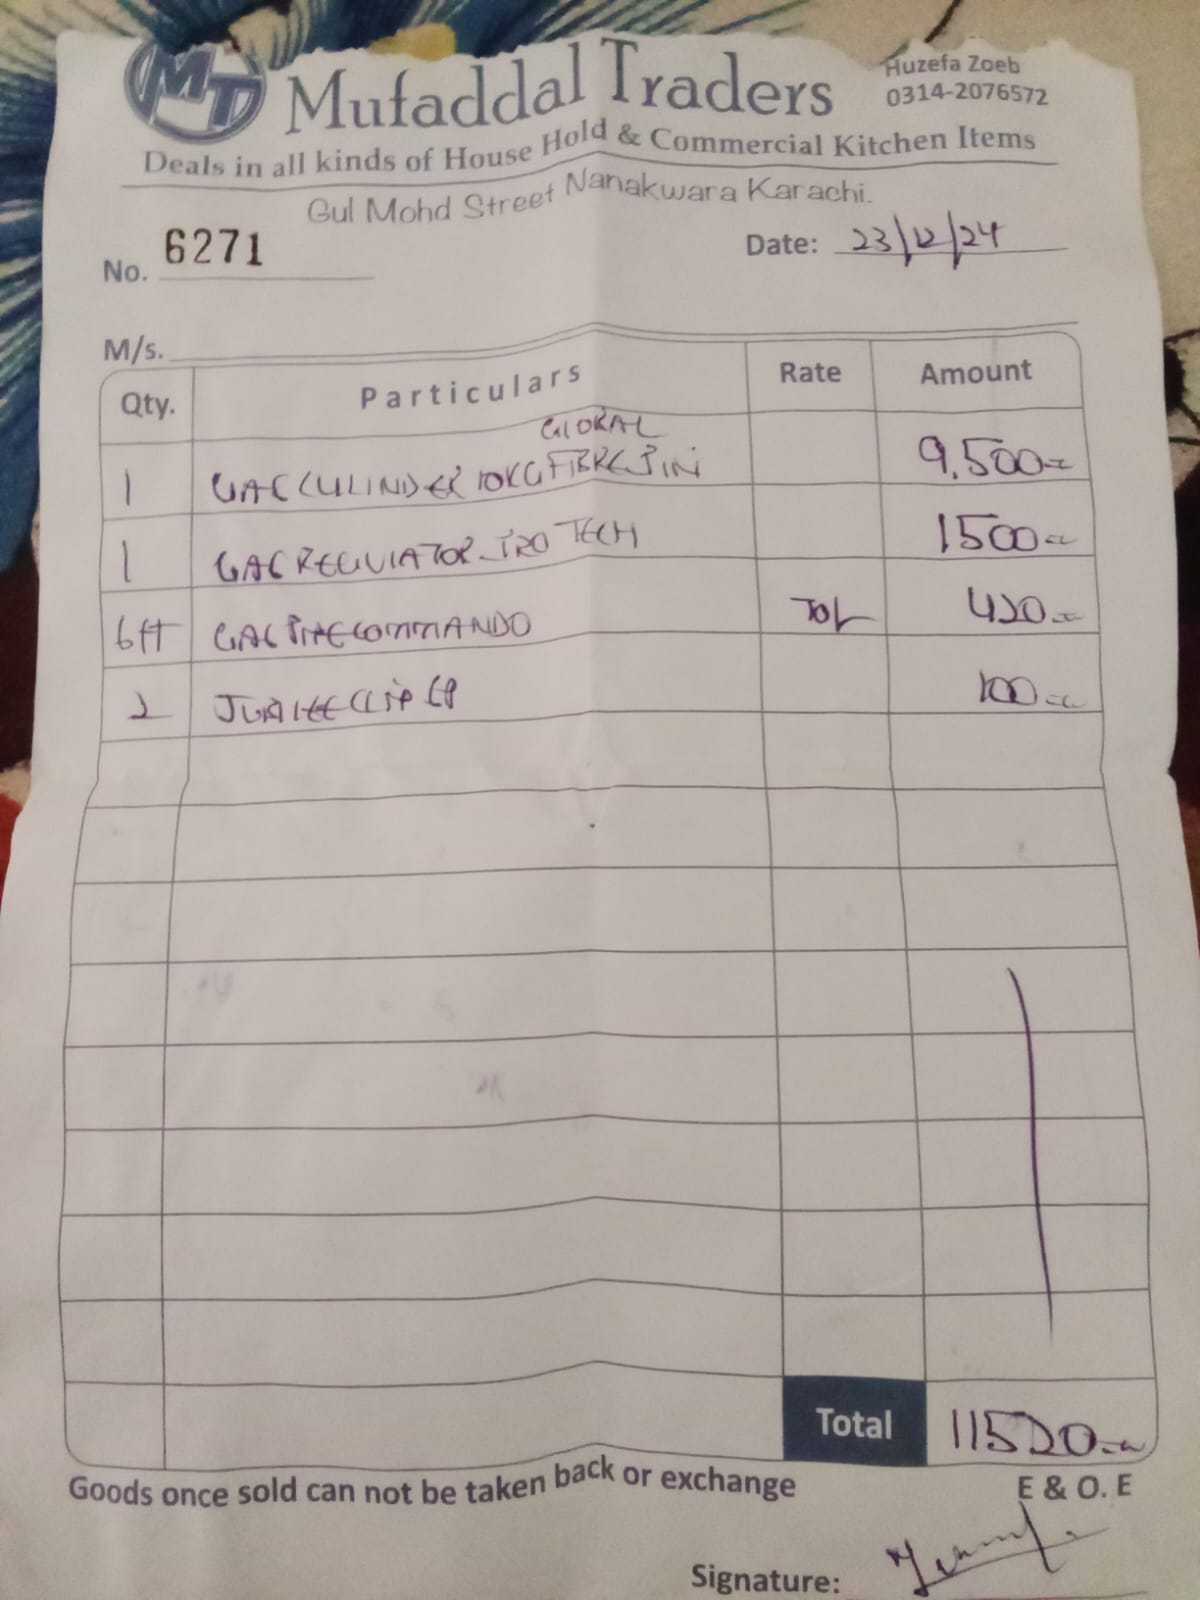 MT Mufaddal Traders
Huzefa Zoeb
0314-2076572
Deals in all kinds of House Hold & Commercial Kitchen Items
Gul Mohd Street Nanakwara Karachi.
No. 6271
Date: 23/12/24
M/s.
Qty. Particulars Rate Amount
GLOBAL
1 GAS CYLINDER 10KG FIBRE 9,500
1 GAS REGULATOR TECH 1500
6ft GAS PIPE COMMANDO 70/- 420
2 JUBILEE CLIP 100
Total 11520
Goods once sold can not be taken back or exchange
E & O. E
Signature: